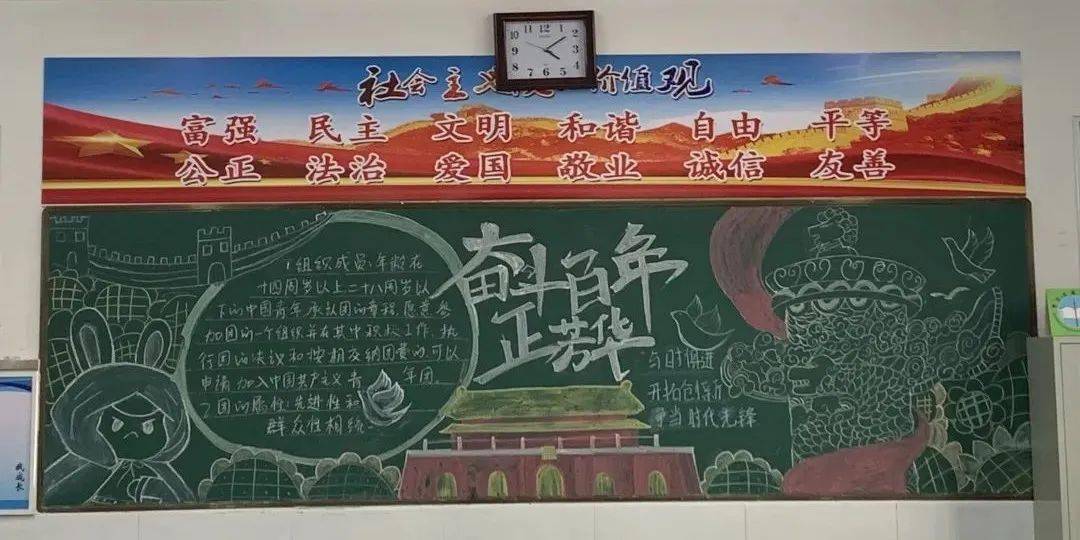 社会主义 价值观
富强 民主 文明 和谐 自由 平等
公正 法治 爱国 敬业 诚信 友善
12 1 2 3 4 5 6 7 8 9 10 11
奋斗百年
正芳华
1 组织成员:年龄在
十四周岁以上二十八周岁以
下的中国青年承认团的章程,愿意参
加团的一个组织并在其中积极工作,执
行团的决议和按期交纳团费的可以
申请加入中国共产主义青年团。
2 团的属性:先进性和
群众性相统一
与时俱进
开拓创新
争当时代先锋
我成长